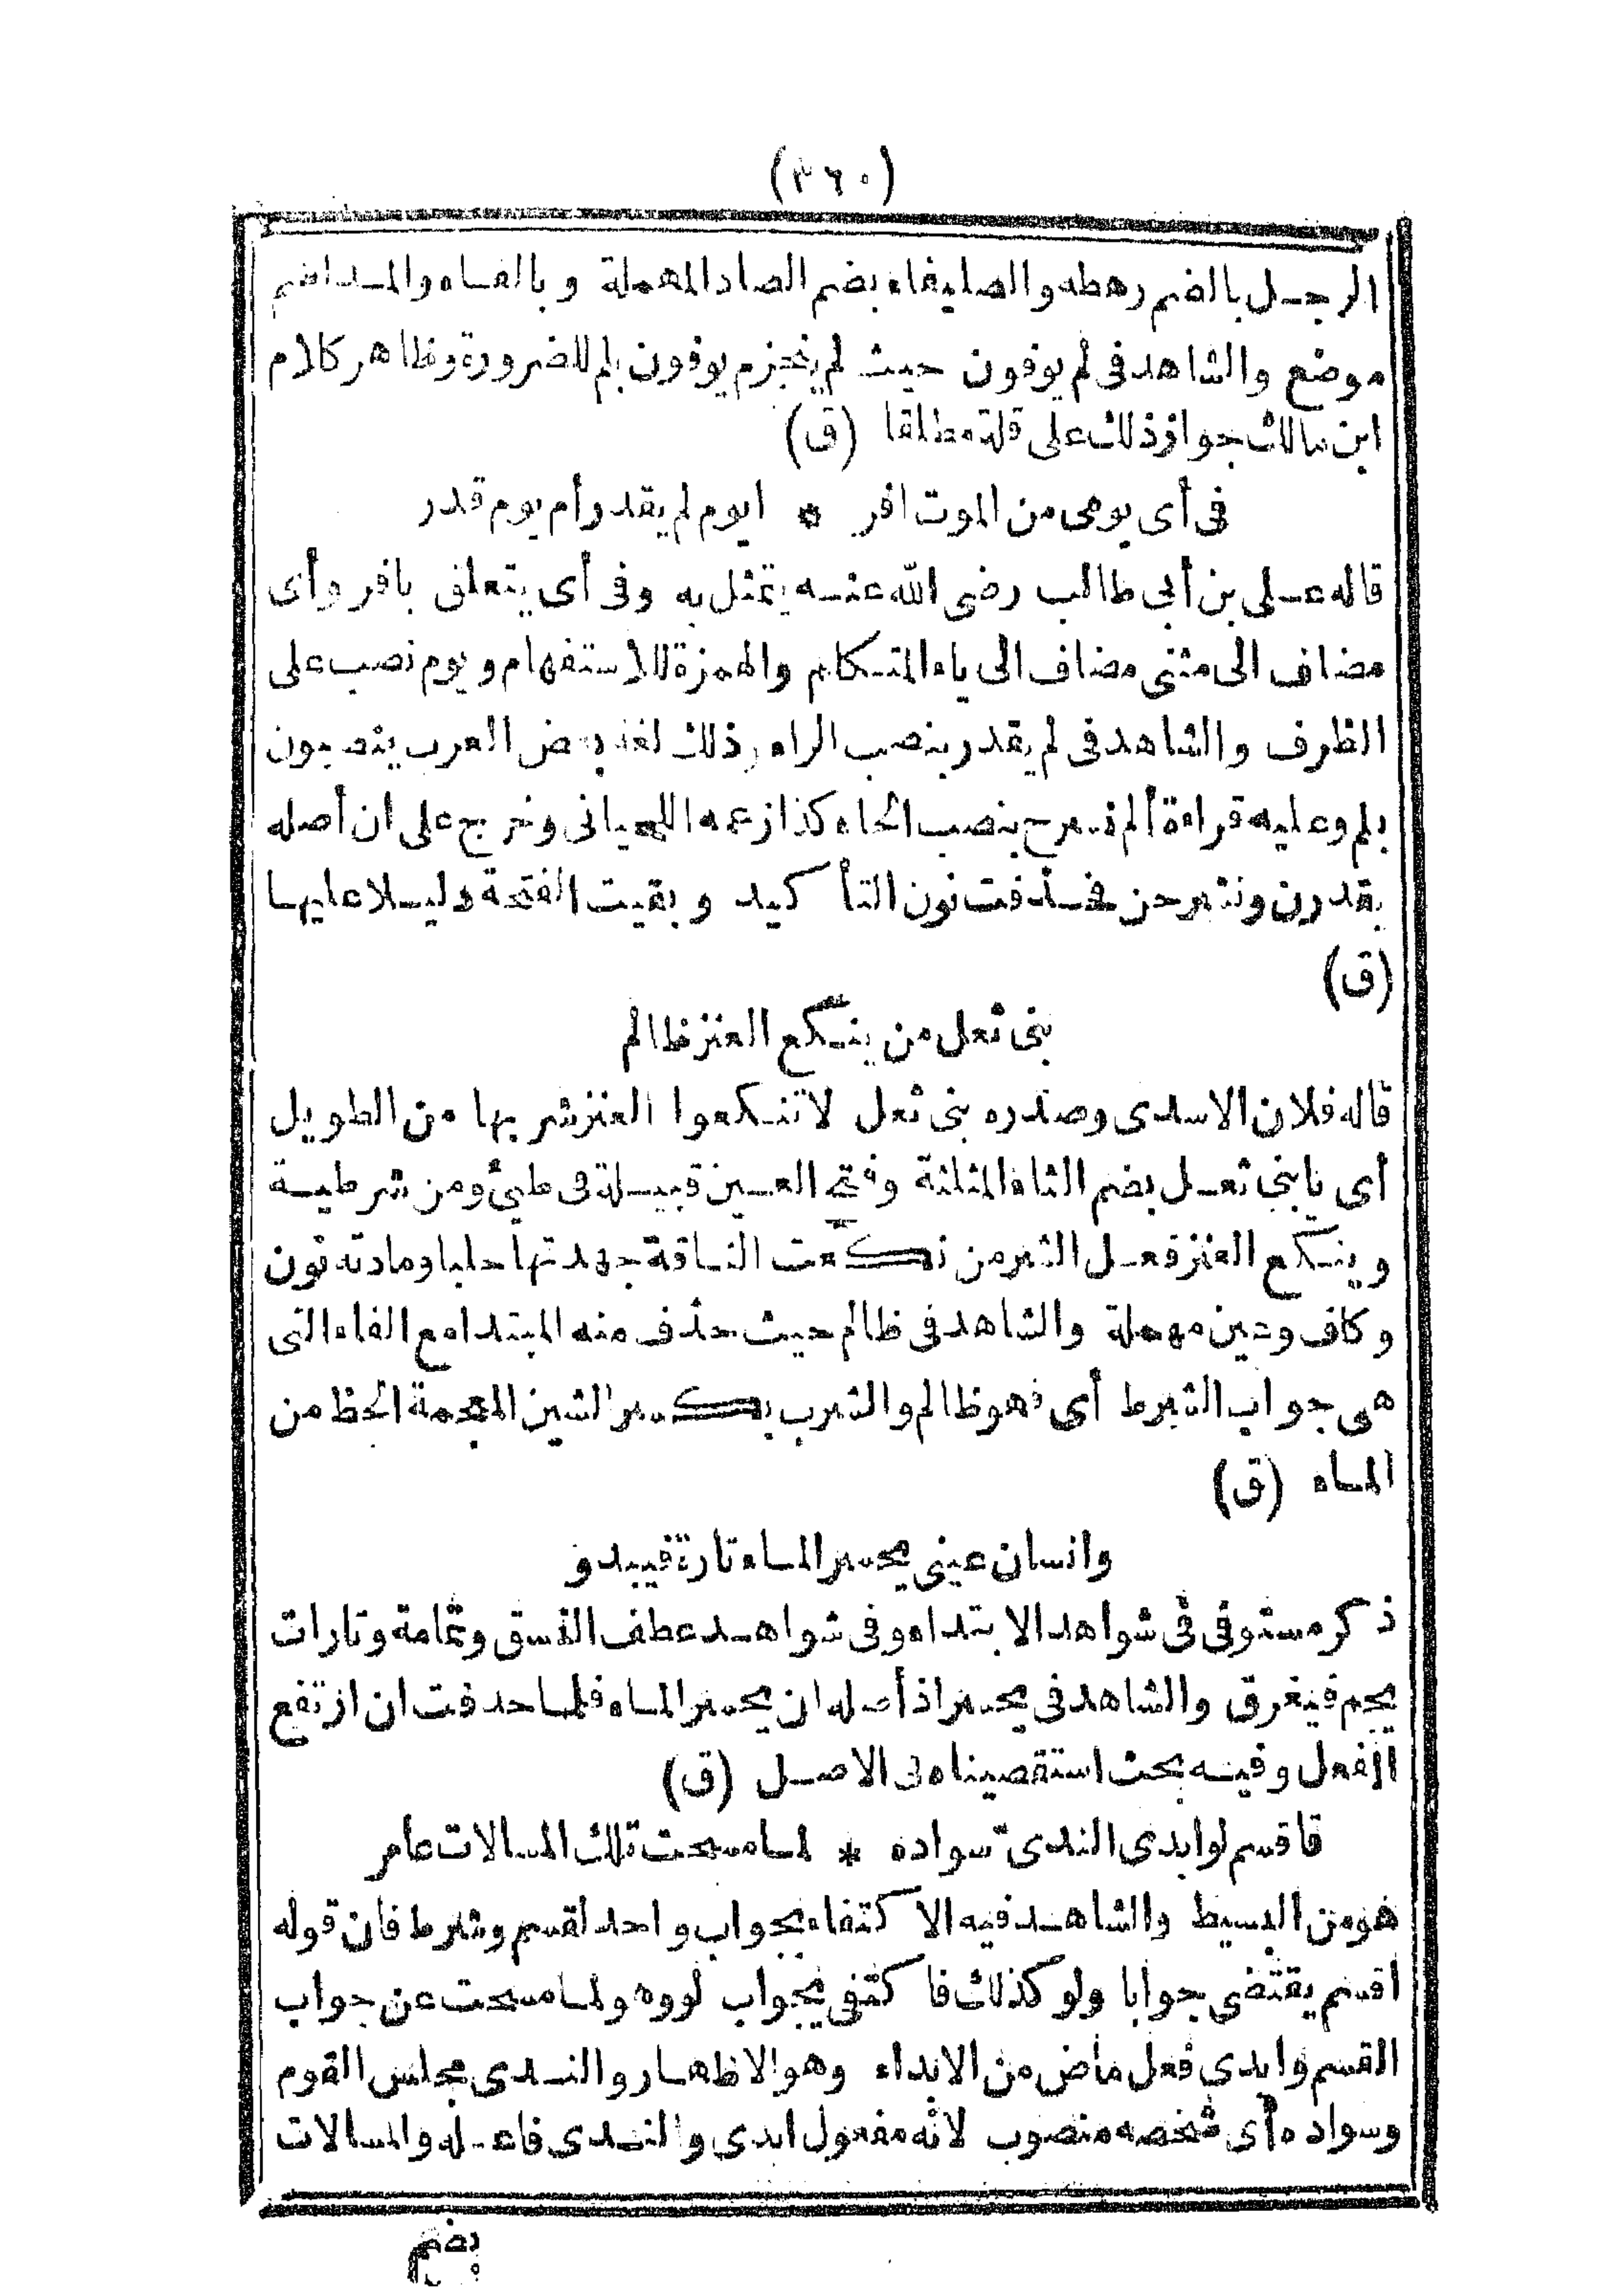 (٣٦٠)
الرجل بالضم رهطه والصليفاء بضم الصاد المهملة وبالفاء والمد اسم
موضع والشاهد في لم يوفون حيث لم ينجزم يوفون بلم للضرورة وظاهر كلام
ابن مالك جواز ذلك على قلة مطلقا (ق)
في أى يومى من الموت افر * ايوم لم يقدر أم يوم قدر
قاله على بن أبي طالب رضي الله عنه يتمثل به وفي أى يتعلق بافر وأى
مضاف الى مثنى مضاف الى ياء المتكلم والهمزة للاستفهام ويوم نصب على
الظرف والشاهد في لم يقدر بنصب الراء وذلك لغة بعض العرب ينصبون
بلم وعليه قراءة ألم نشرح بنصب الحاء كذا زعمه اللحياني وخرج على ان أصله
يقدرن ونشرحن فحذفت نون التأكيد وبقيت الفتحة دليلا عليها
(ق)
بنى ثعل من ينكع العنز ظالم
قاله فلان الاسدى وصدره بنى ثعل لا تنكعوا العنز شربها من الطويل
أى يا بنى ثعل بضم الثاء المثلثة وفتح العين قبيلة في طيئ ومن شرطية
وينكع العنز فعل الشرمن نكعت الناقة جهدتها حلبا ومادته نون
وكاف وعين مهملة والشاهد في ظالم حيث حذف منه المبتدا مع الفاء التى
هى جواب الشرط أى فهو ظالم والشرب بكسر الشين المعجمة الحظ من
الماء (ق)
وانسان عينى يحسر الماء تارة فيبدو
ذكر مستوفى في شواهد الابتداء وفي شواهد عطف النسق وتمامه وتارات
يجم فيغرق والشاهد في يحسر اذ أصله ان يحسر الماء فلما حذفت ان ارتفع
الفعل وفيه بحث استقصيناه في الاصل (ق)
فاقسم لو ابدى الندى سواده * لما مسحت تلك المسالات عامر
هو من البسيط والشاهد فيه الاكتفاء بجواب واحد لقسم وشرط فان قوله
اقسم يقتضى جوابا ولو كذلك فاكتفى بجواب لو وهو لما مسحت عن جواب
القسم وابدى فعل ماض من الابداء وهو الاظهار والندى مجلس القوم
وسواده أى شخصه منصوب لانه مفعول ابدى والندى فاعله والمسالات
بضم